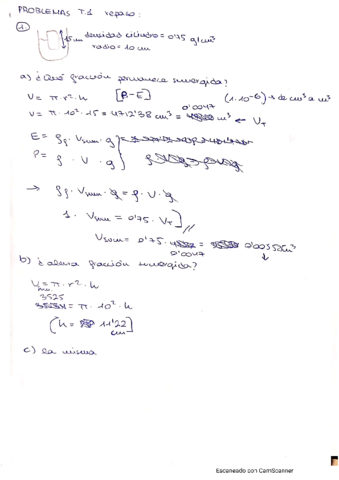 PROBLEMAS T.1 repaso:
1.
15 cm densidad cilindro = 0'75 g/cm³
radio = 10 cm
a) ¿Qué fracción permanece sumergida?
V = π·r²·h [P=E] (1·10⁻⁶) → de cm³ a m³
V = π·10²·15 = 4712'38 cm³ = 0'0047 m³ ← V_T
E = ρf · Vsum · g
P = ρ · V · g
→ ρf · Vsum · g = ρ · V · g
1 · Vsum = 0'75 · V_T
Vsum = 0'75 · 0'0047 = 0'0035 m³
b) ¿altura fracción sumergida?
V = π · r² · h
3525 = π · 10² · h
(h = 11'22 cm)
c) la misma
Escaneado con CamScanner